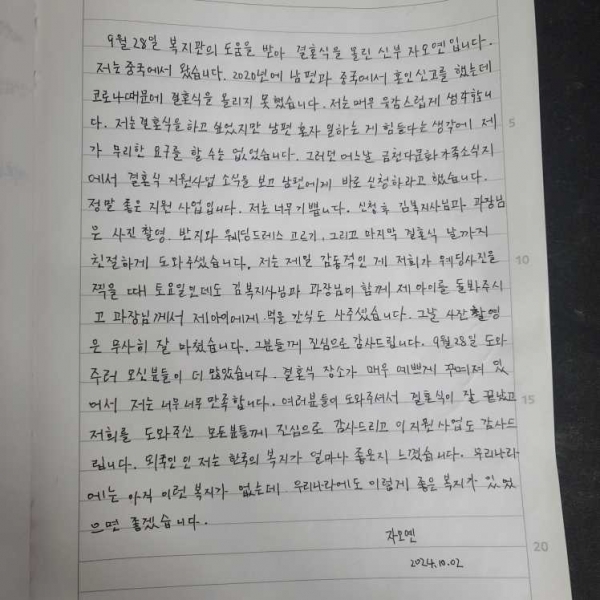 9월 28일 복지관의 도움을 받아 결혼식을 올린 신부 자오옌입니다.
저는 중국에서 왔습니다. 2020년에 남편과 중국에서 혼인신고를 했는데
코로나때문에 결혼식을 올리지 못했습니다. 저는 매우 유감스럽게 생각합니
다. 저는 결혼식을 하고 싶었지만 남편 혼자 일하는 게 힘들다는 생각에 제
가 무리한 요구를 할 수는 없었습니다. 그러던 어느날 금천다문화가족소식지
에서 결혼식 지원사업 소식을 보고 남편에게 바로 신청하라고 했습니다.
정말 좋은 지원 사업입니다. 저는 너무 기쁩니다. 신청 후 김복지사님과 과장님
은 사진촬영, 반지와 웨딩드레스 고르기, 그리고 마지막 결혼식 날까지
친절하게 도와주셨습니다. 저는 제일 감동적인 게 저희가 웨딩사진을
찍을 때 토요일인데도 김복지사님과 과장님이 함께 제 아이를 돌봐주시
고 과장님께서 제 아이에게 먹을 간식도 사주셨습니다. 그날 사진 촬영
은 무사히 잘 마쳤습니다. 그분들께 진심으로 감사드립니다. 9월 28일 도와
주러 오신분들이 더 많았습니다. 결혼식 장소가 매우 예쁘게 꾸며져 있
어서 저는 너무 너무 만족합니다. 여러분들이 도와주셔서 결혼식이 잘 끝났고
저희를 도와주신 모든분들께 진심으로 감사드리고 이 지원 사업도 감사드
립니다. 외국인인 저는 한국의 복지가 얼마나 좋은지 느꼈습니다. 우리나라
에는 아직 이런 복지가 없는데 우리나라에도 이렇게 좋은 복지가 있었
으면 좋겠습니다.
자오옌
2024.10.02
5
10
15
20